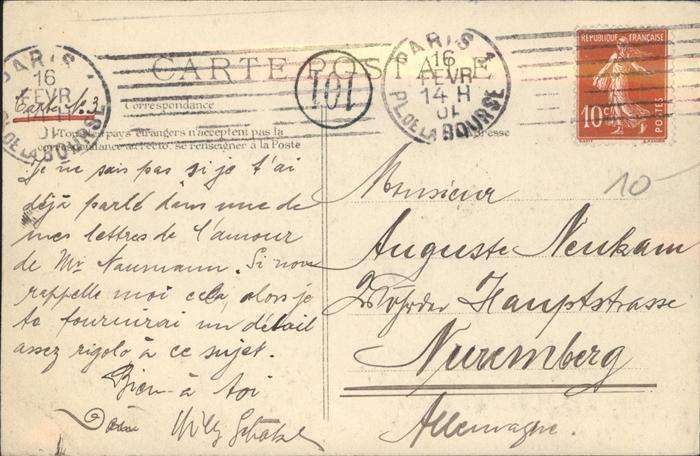 CARTE POSTALE
PARIS 1
16
FEVR
PL. DE LA BOURSE
PARIS 1
16
FEVR
14 H
01
PL. DE LA BOURSE
101
RÉPUBLIQUE FRANÇAISE
10c
POSTES
10
Carte No. 3
Correspondance
Tous les pays étrangers n'acceptent pas la
correspondance au recto. se renseigner à la Poste
Je ne sais pas si je t'ai
déjà parlé dans une de
mes lettres de l'amour
de Mr Naumann. Si non
rappelle moi cela, alors je
te fournirai un détail
assez rigolo à ce sujet.
Bien à toi
Willy
Monsieur
Auguste Neukam
Hauptstrasse
Nuremberg
Allemagne.